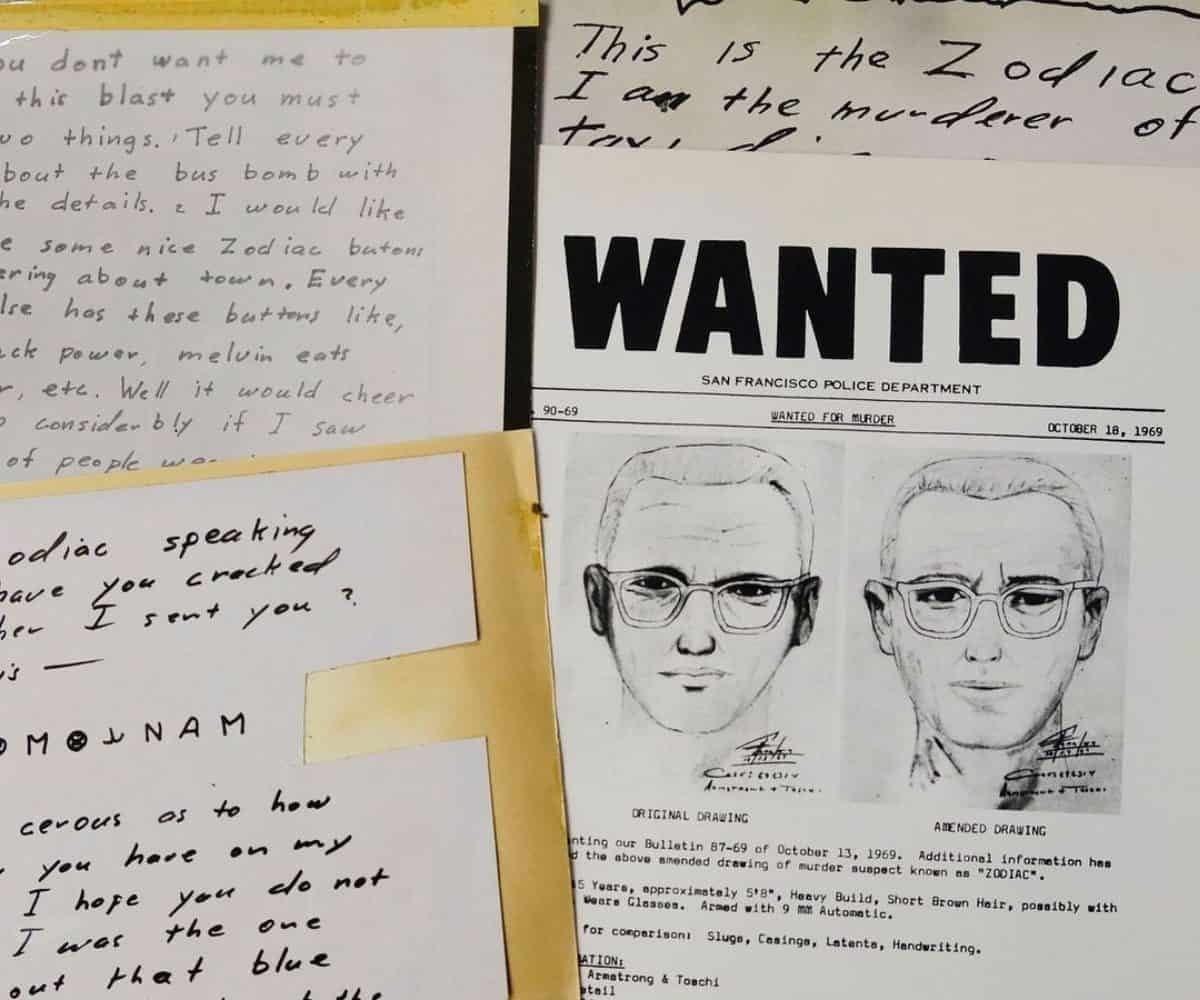 ou dont want me to
this blast you must
wo things. Tell every
bout the bus bomb with
he details. 2 I would like
e some nice Zodiac butons
ering about town. Every
lse has these buttons like,
ack power, melvin eats
r, etc. Well it would cheer
considerbly if I saw
of people
odiac speaking
have you cracked
her I sent you ?
is —
NAM
cerous as to how
you have on my
I hope you do not
I was the one
out that blue
the
This is the Zodiac
I am the murderer of
WANTED
SAN FRANCISCO POLICE DEPARTMENT
90-69 WANTED FOR MURDER OCTOBER 18, 1969
ORIGINAL DRAWING AMENDED DRAWING
nting our Bulletin 87-69 of October 13, 1969. Additional information has
d the above amended drawing of murder suspect known as "ZODIAC".
5 Years, approximately 5'8", Heavy Build, Short Brown Hair, possibly with
Wears Glasses. Armed with 9 MM Automatic.
for comparison: Slugs, Casings, Latents, Handwriting.
ATION:
Armstrong & Toschi
etail